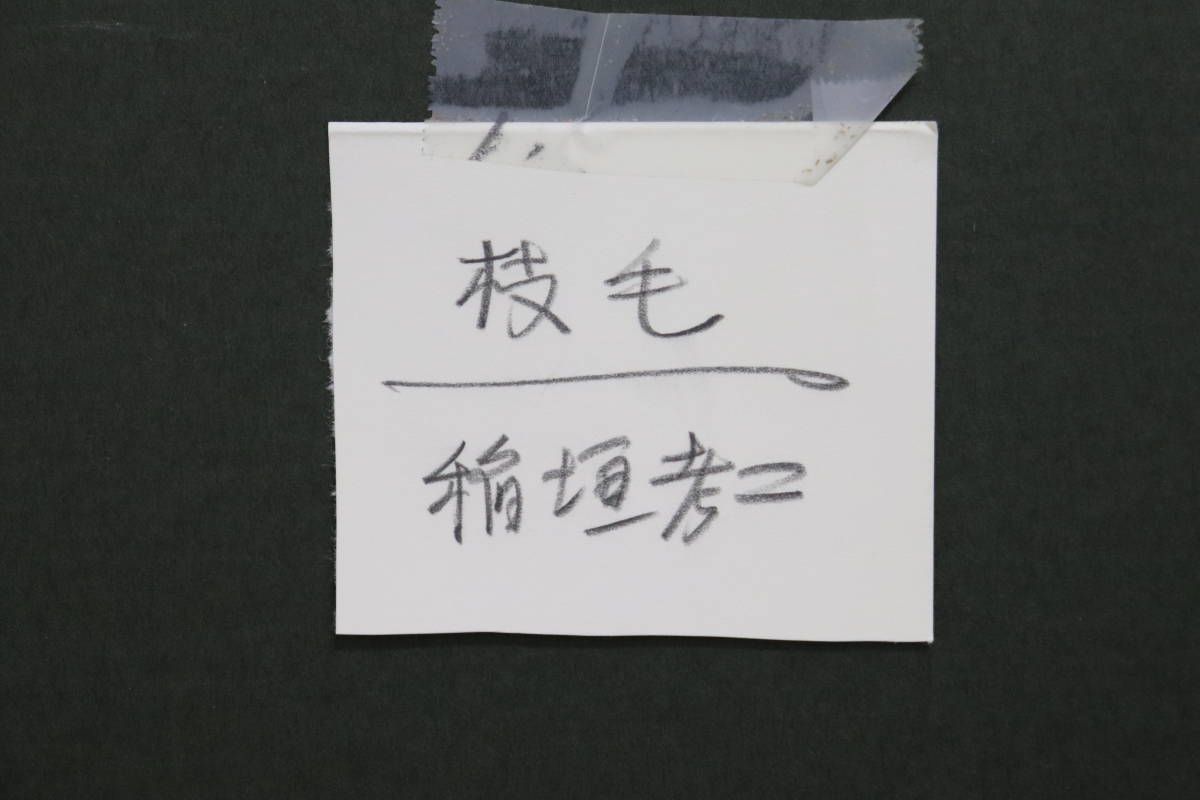 枝毛
稲垣考二